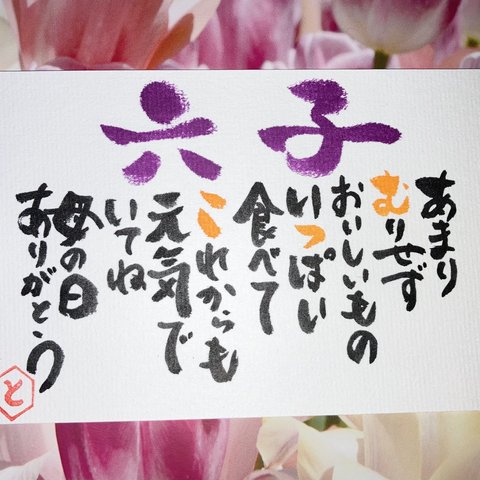 六子
あまり
むりせず
おいしいもの
いっぱい
食べて
これからも
元気で
いてね
母の日
ありがとう
と